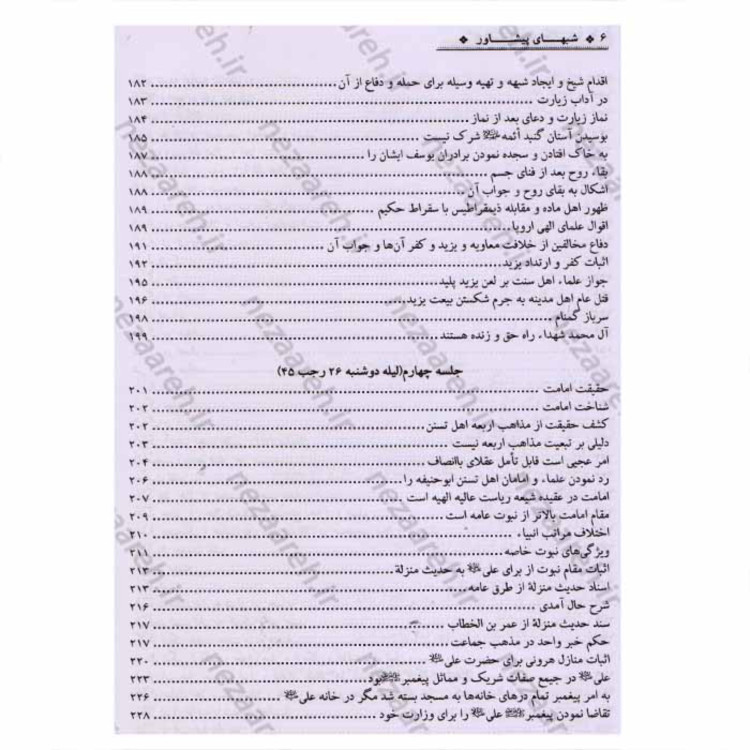 ۶ ❖ شبهــای پیشــاور ❖
اقدام شیخ و ایجاد شبهه و تهیه وسیله برای حمله و دفاع از آن ........ ۱۸۲
در آداب زیارت ........ ۱۸۳
نماز زیارت و دعای بعد از نماز ........ ۱۸۴
بوسیدن آستان گنبد أئمه شرک نیست ........ ۱۸۵
به خاک افتادن و سجده نمودن برادران یوسف ایشان را ........ ۱۸۷
بقاء روح بعد از فنای جسم ........ ۱۸۸
اشکال به بقای روح و جواب آن ........ ۱۸۸
ظهور اهل ماده و مقابله ذیمقراطیس با سقراط حکیم ........ ۱۸۹
اقوال علمای الهی اروپا ........ ۱۸۹
دفاع مخالفین از خلافت معاویه و یزید و کفر آن‌ها و جواب آن ........ ۱۹۱
اثبات کفر و ارتداد یزید ........ ۱۹۲
جواز علماء اهل سنت بر لعن یزید پلید ........ ۱۹۵
قتل عام اهل مدینه به جرم شکستن بیعت یزید ........ ۱۹۶
سرباز گمنام ........ ۱۹۸
آل محمد شهداء راه حق و زنده هستند ........ ۱۹۹
جلسه چهارم(لیله دوشنبه ۲۶ رجب ۴۵)
حقیقت امامت ........ ۲۰۱
شناخت امامت ........ ۲۰۲
کشف حقیقت از مذاهب اربعه اهل تسنن ........ ۲۰۲
دلیلی بر تبعیت مذاهب اربعه نیست ........ ۲۰۳
امر عجیبی است قابل تأمل عقلای باانصاف ........ ۲۰۴
رد نمودن علماء و امامان اهل تسنن ابوحنیفه را ........ ۲۰۶
امامت در عقیده شیعه ریاست عالیه الهیه است ........ ۲۰۷
مقام امامت بالاتر از نبوت عامه است ........ ۲۰۹
اختلاف مراتب انبیاء ........ ۲۱۰
ویژگی‌های نبوت خاصه ........ ۲۱۱
اثبات مقام نبوت از برای علی به حدیث منزلة ........ ۲۱۳
اسناد حدیث منزلة از طرق عامه ........ ۲۱۳
شرح حال آمدی ........ ۲۱۶
سند حدیث منزلة از عمر بن الخطاب ........ ۲۱۷
حکم خبر واحد در مذهب جماعت ........ ۲۱۷
اثبات منازل هرونی برای حضرت علی ........ ۲۲۰
علی در جمیع صفات شریک و مماثل پیغمبر بود ........ ۲۲۳
به امر پیغمبر تمام درهای خانه‌ها به مسجد بسته شد مگر در خانه علی ........ ۲۲۶
تقاضا نمودن پیغمبر علی را برای وزارت خود ........ ۲۲۸
nezaareh.ir